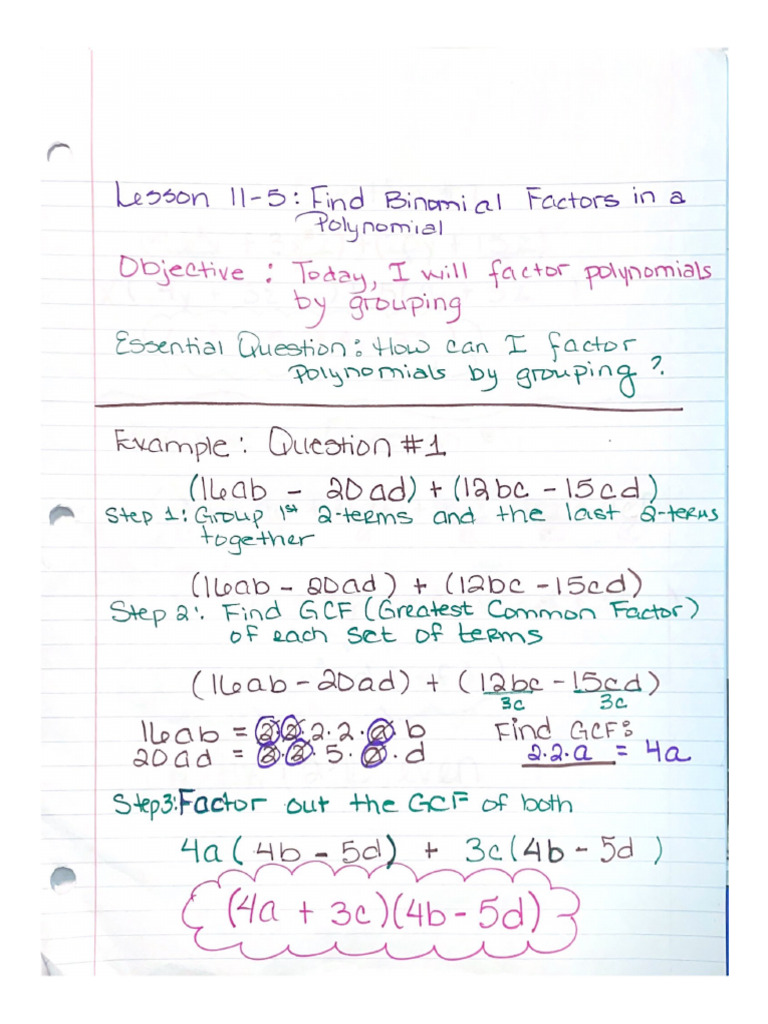 Lesson 11-5: Find Binomial Factors in a
Polynomial
Objective : Today, I will factor polynomials
by grouping
Essential Question: How can I factor
polynomials by grouping?
Example: Question #1
(16ab - 20ad) + (12bc - 15cd)
Step 1: Group 1st 2-terms and the last 2-terms
together
(16ab - 20ad) + (12bc - 15cd)
Step 2: Find GCF (Greatest Common Factor)
of each set of terms
(16ab - 20ad) + (12bc - 15cd)
3c 3c
16ab = 2·2·2·2·a·b Find GCF:
20ad = 2·2·5·a·d 2·2·a = 4a
Step3: Factor out the GCF of both
4a(4b - 5d) + 3c(4b - 5d)
(4a + 3c)(4b - 5d)